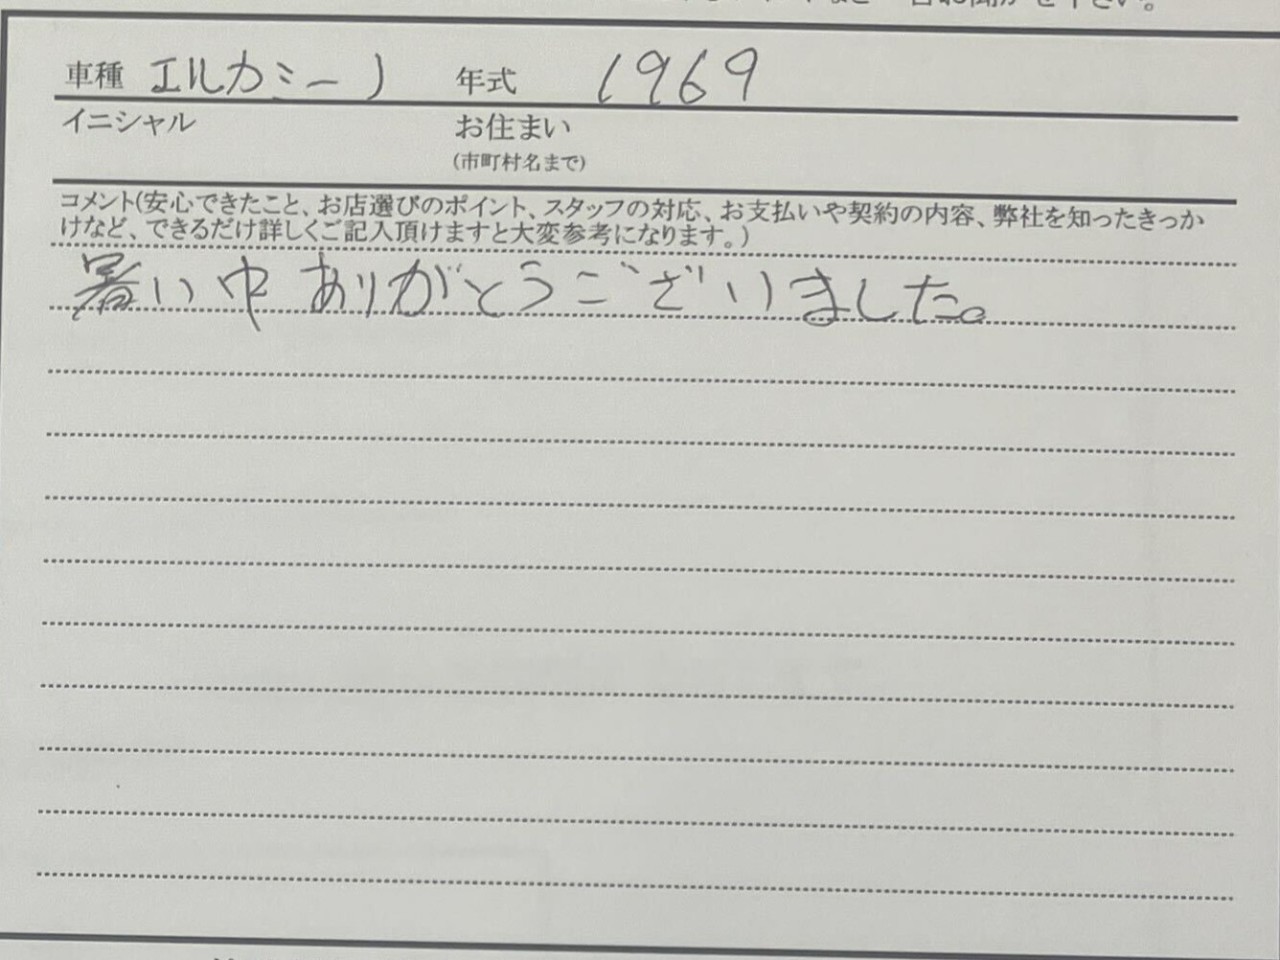 車種 エルカミーノ 年式 1969
イニシャル お住まい
(市町村名まで)
コメント(安心できたこと、お店選びのポイント、スタッフの対応、お支払いや契約の内容、弊社を知ったきっか
けなど、できるだけ詳しくご記入頂けますと大変参考になります。)
暑い中ありがとうございました。